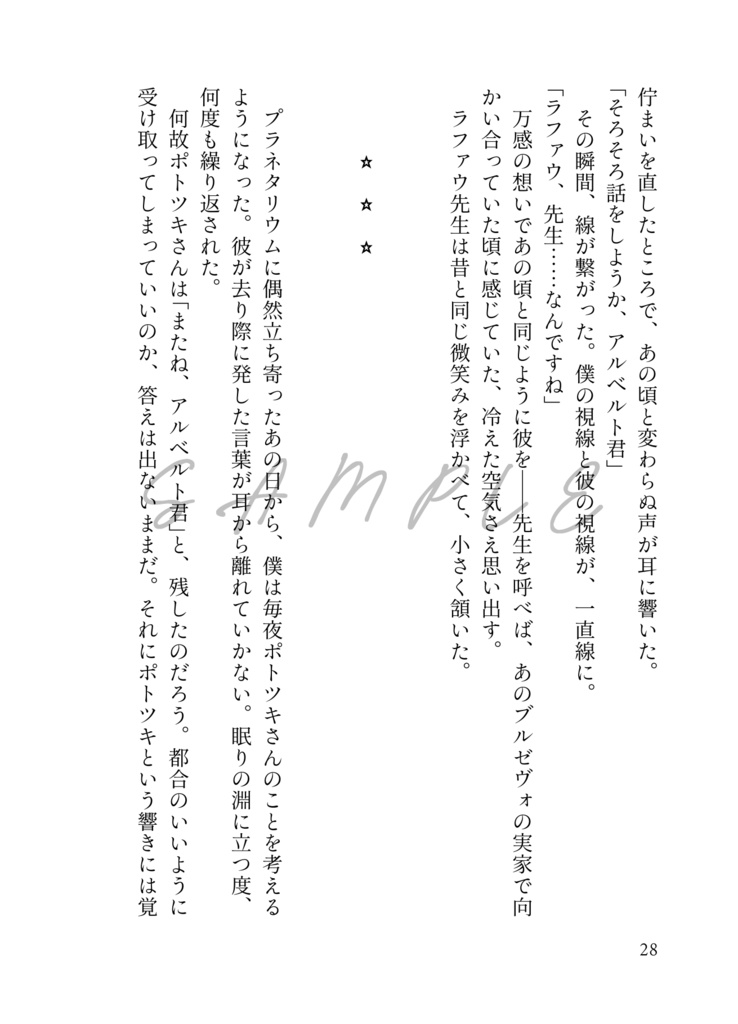 佇まいを直したところで、あの頃と変わらぬ声が耳に響いた。
「そろそろ話をしようか、アルベルト君」
その瞬間、線が繋がった。僕の視線と彼の視線が、一直線に。
「ラファウ、先生……なんですね」
万感の想いであの頃と同じように彼を――先生を呼べば、あのブルゼヴォの実家で向
かい合っていた頃に感じていた、冷えた空気さえ思い出す。
ラファウ先生は昔と同じ微笑みを浮かべて、小さく頷いた。
☆ ☆ ☆
プラネタリウムに偶然立ち寄ったあの日から、僕は毎夜ポトツキさんのことを考える
ようになった。彼が去り際に発した言葉が耳から離れていかない。眠りの淵に立つ度、
何度も繰り返された。
何故ポトツキさんは「またね、アルベルト君」と、残したのだろう。都合のいいように
受け取ってしまっていいのか、答えは出ないままだ。それにポトツキという響きには覚
SAMPLE
28